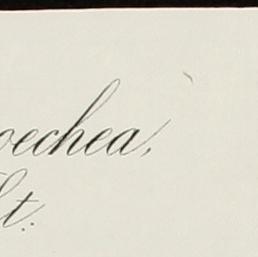 oechea,
lt.